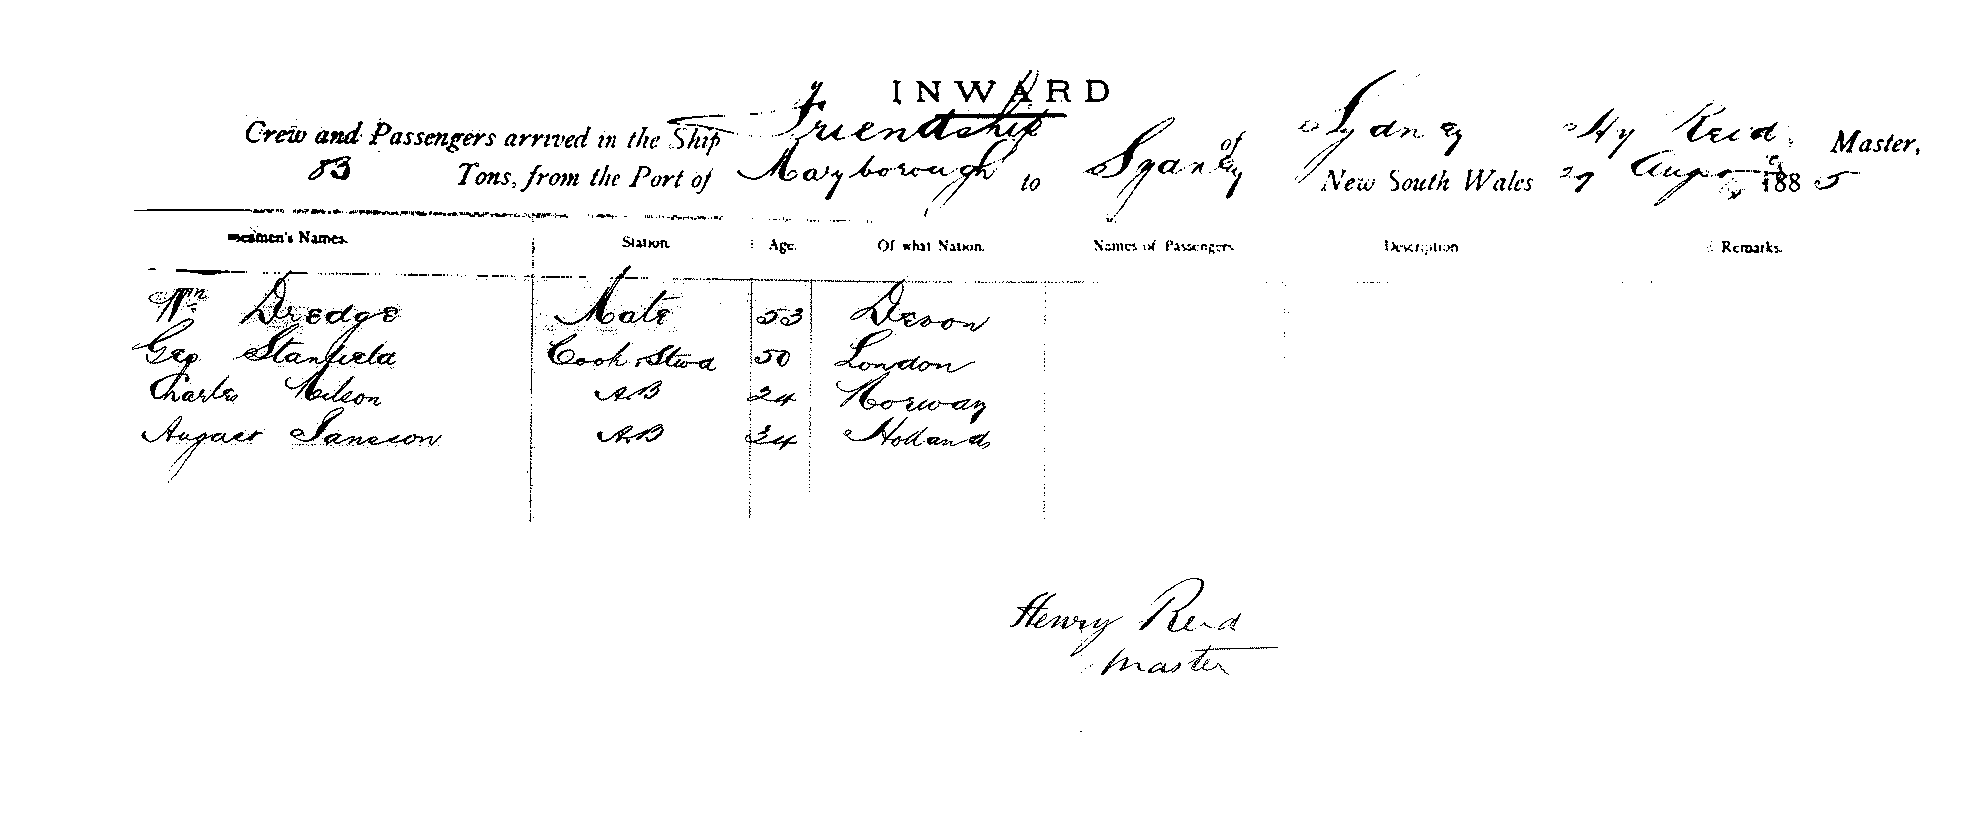 INWARD
Crew and Passengers arrived in the Ship Friendship of Sydney Hy Reid Master,
83 Tons, from the Port of Maryborough to Sydney New South Wales 27 Augst 1885
Seamen's Names. Station. Age. Of what Nation. Names of Passengers. Description Remarks.
Wm Dredge Mate 53 Devon
Geo Stanfield Cook & Stwd 50 London
Charles Nilson AB 24 Norway
August Jansson AB 24 Holland
Henry Reid
Master